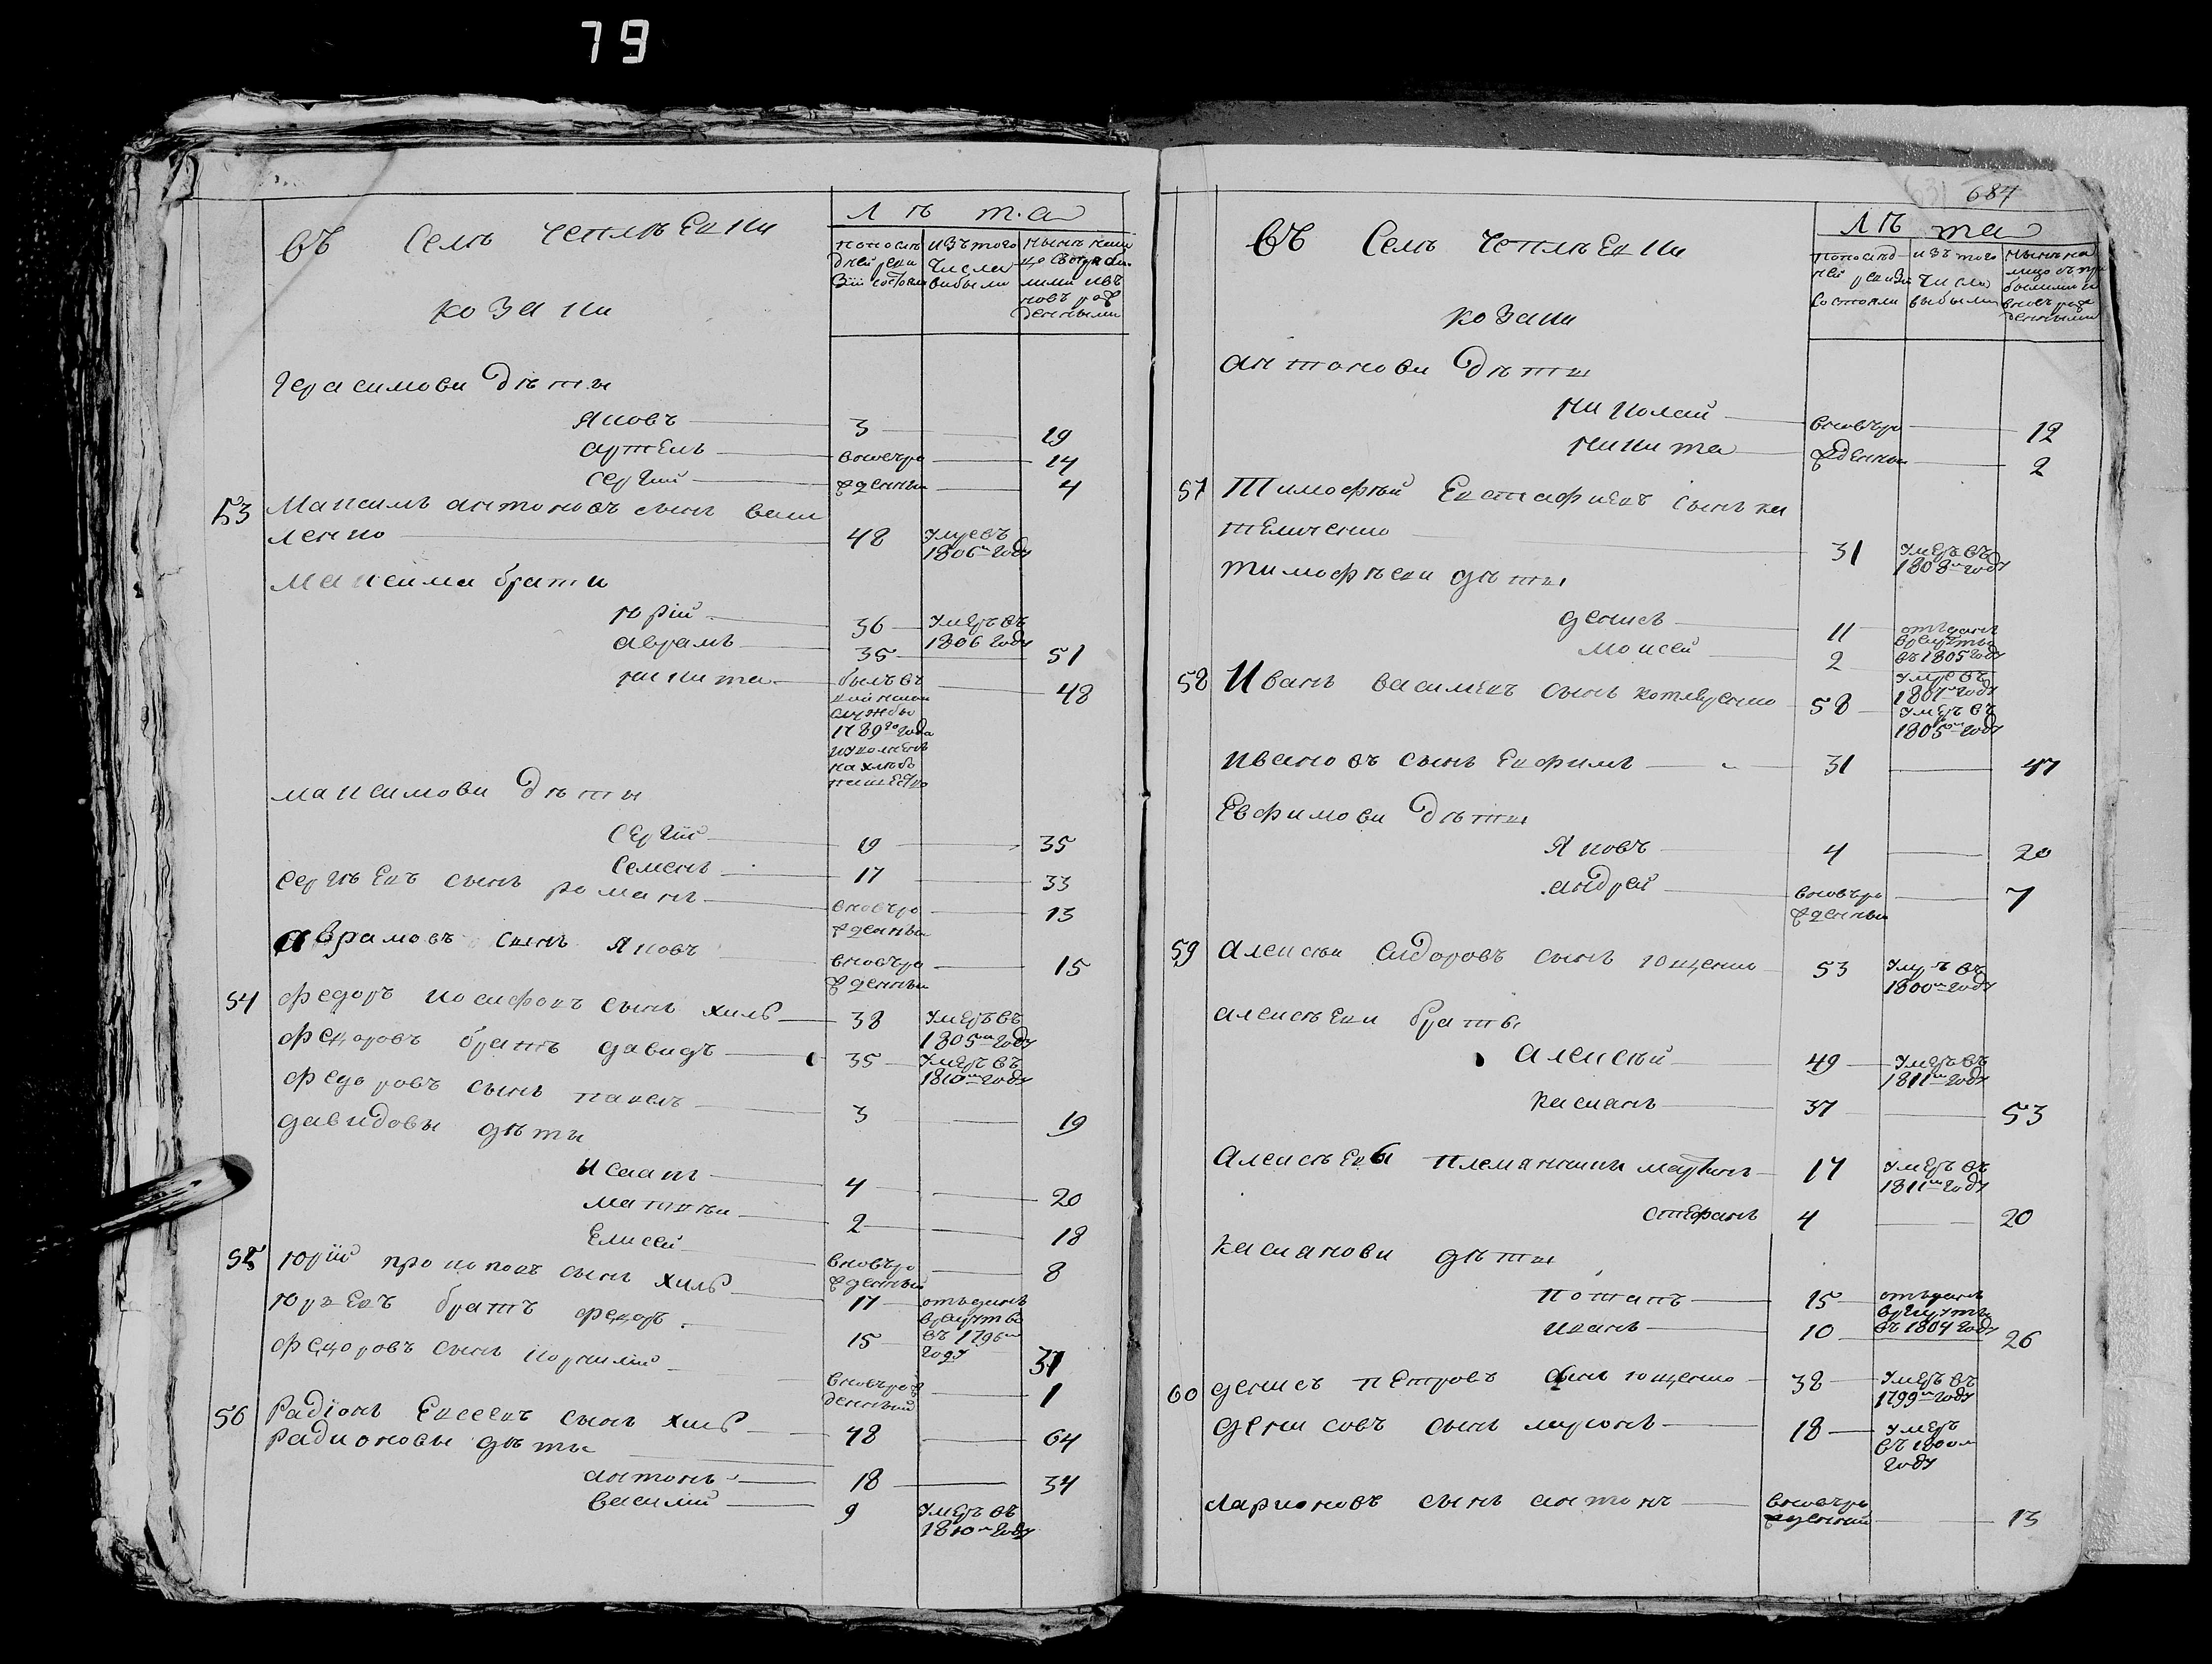 79
въ селѣ чеплѣевки
козаки
Лѣта
попослѣдней ревизіи состояло
изъ того числа выбыли
нынѣ
Герасимови дѣти
Яковъ 3 19
артемъ вновъро 14
сергій жденны 4
53 Максимъ антоновъ сынъ васи
ленко 48 умре въ 1806м году
максима брати
юрій 36 умеръ въ 1806 году
аврамъ 35 51
никита былъ въ службы 1789го года 48
максимови дѣти
сергій 19 35
семенъ 17 33
сергѣевъ сынъ романъ вновъро жденны 13
аврамовъ сынъ яковъ вновъро жденны 15
54 федоръ иосифовъ сынъ хиль 38 умеръ въ 1805м году
федоровъ братъ давидъ 35 умеръ въ 1810м году
федоровъ сынъ павелъ 3 19
давидовы дѣти
исаакъ 4 20
матвѣи 2 18
елисей вновъро жденный 8
55 юрій прокоповъ сынъ хиль 17 отъданъ врекруты въ 1796м году
юрьевъ братъ федоръ 15 31
федоровъ сынъ корнилій вновърож денный 1
56 Радіонъ евсеевъ сынъ хиль 48 64
радионовы дѣты
антонъ 18 34
василій 9 умеръ въ 1810м году
684
въ селѣ чеплѣевки
козаки
Лѣта
попослѣдней ревизіи состояли
изъ того числа выбыли
нынѣ на лицо съ прибылими и вновъ рожденными
антонови дѣти
николай вновъро 12
никита жденны 2
57 Тимофѣй евстафиевъ сынъ ка
теличенко 31 умеръ въ 1808м году
тимофѣеви дѣти
денисъ 11 отъданъ врекруты въ 1805 году
моисей 2 умре въ 1807м году
58 Иванъ василиевъ сынъ котляренко 58 умеръ въ 1805м году
ивановъ сынъ евфимъ 31 47
Евфимови дѣти
Яковъ 4 20
андрей вновъро жденны 7
59 алексѣи сидоровъ сынъ ющенко 53 умръ въ 1800м году
алексѣеви браты
алексѣй 49 умеръ въ 1811м году
касианъ 37 53
Алексѣевы племянники мартинъ 17 умеръ въ 1811м году
стефанъ 4 20
касианови дѣти
потапъ 15 отъданъ врекруты въ 1804 году
иванъ 10 26
60 денисъ петровъ сынъ ющенко 38 умеръ въ 1799м году
денисовъ сынъ 18 умеръ въ 1800м году
Ларионовъ сынъ антонъ вновъро жденний 13